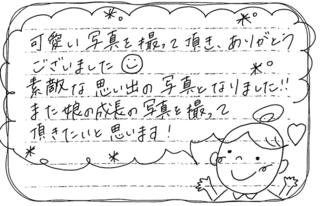 可愛い写真を撮って頂き、ありがとう
ございました
素敵な思い出の写真となりました!!
また娘の成長の写真を撮って
頂きたいと思います!